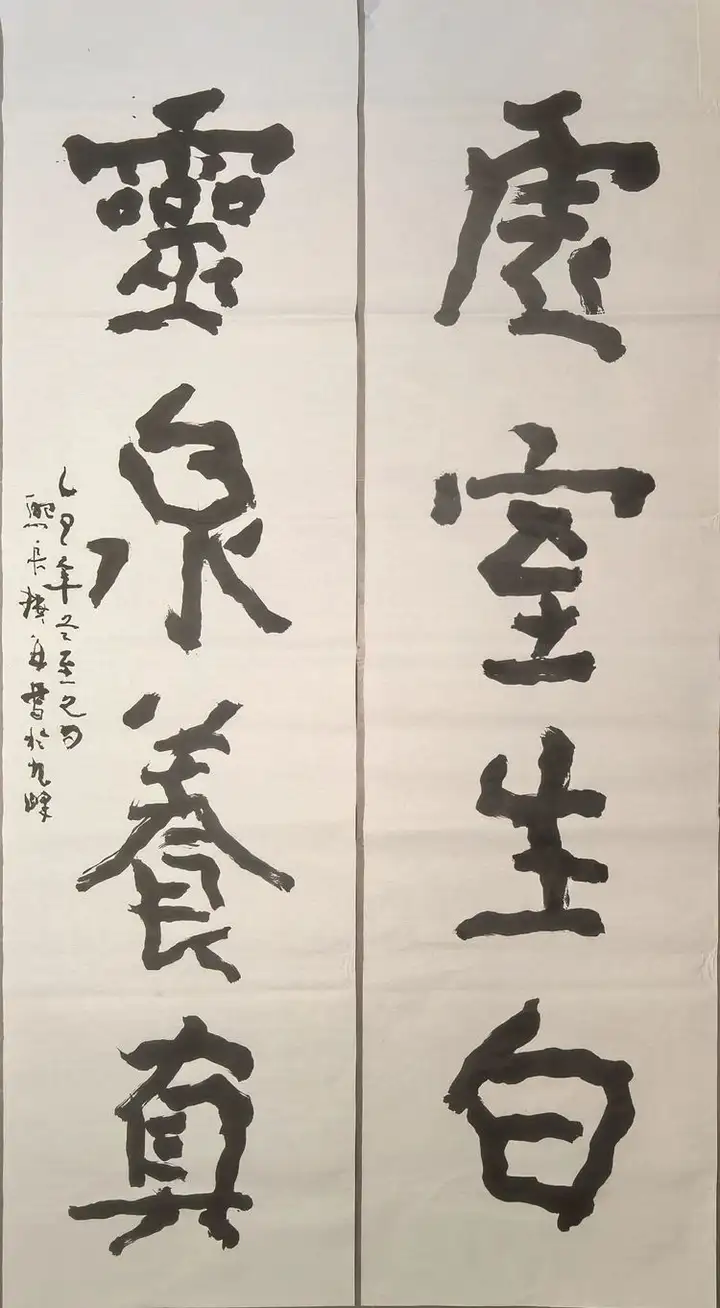 虚室生白
靈泉養真
乙巳年冬至之日
熙長 書於九峰